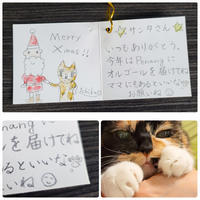 Merry
Xmas!!
サンタさん
いつもありがとう。
今年はPonangに
オルゴールを届けてね
ママにもあるといいな
お願いね
Ponangに
を届けてね
あるといいな
いね